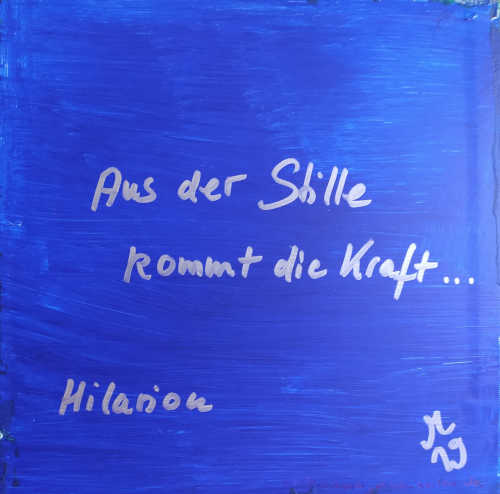 Aus der Stille
kommt die Kraft...
Hilarion